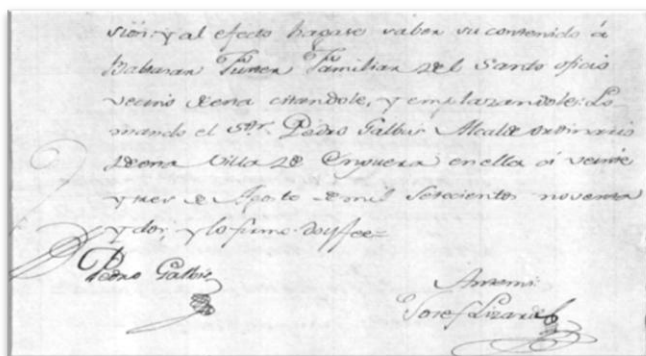 sión; y al efecto hagase saber su contenido á
Baltasar Familiar del Santo oficio
vecino de esta citandole, y emplazandole: Lo
mando el Sor. Pedro Galbis Alcalde ordinario
de esta villa de Enguera en ella á veinte
y tres de Agosto de mil setecientos noventa
y dos; y lo firmo doyfee=
Pedro Galbis
Antemi
Josef